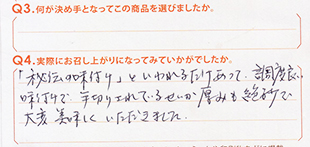 Q3.何が決め手となってこの商品を選びましたか。
Q4.実際にお召し上がりになってみていかがでしたか。
「秘伝の味付け」といわれるだけあって、調度良い
味付けで手切りされているせいか厚みも絶妙で
大変美味しくいただきました。